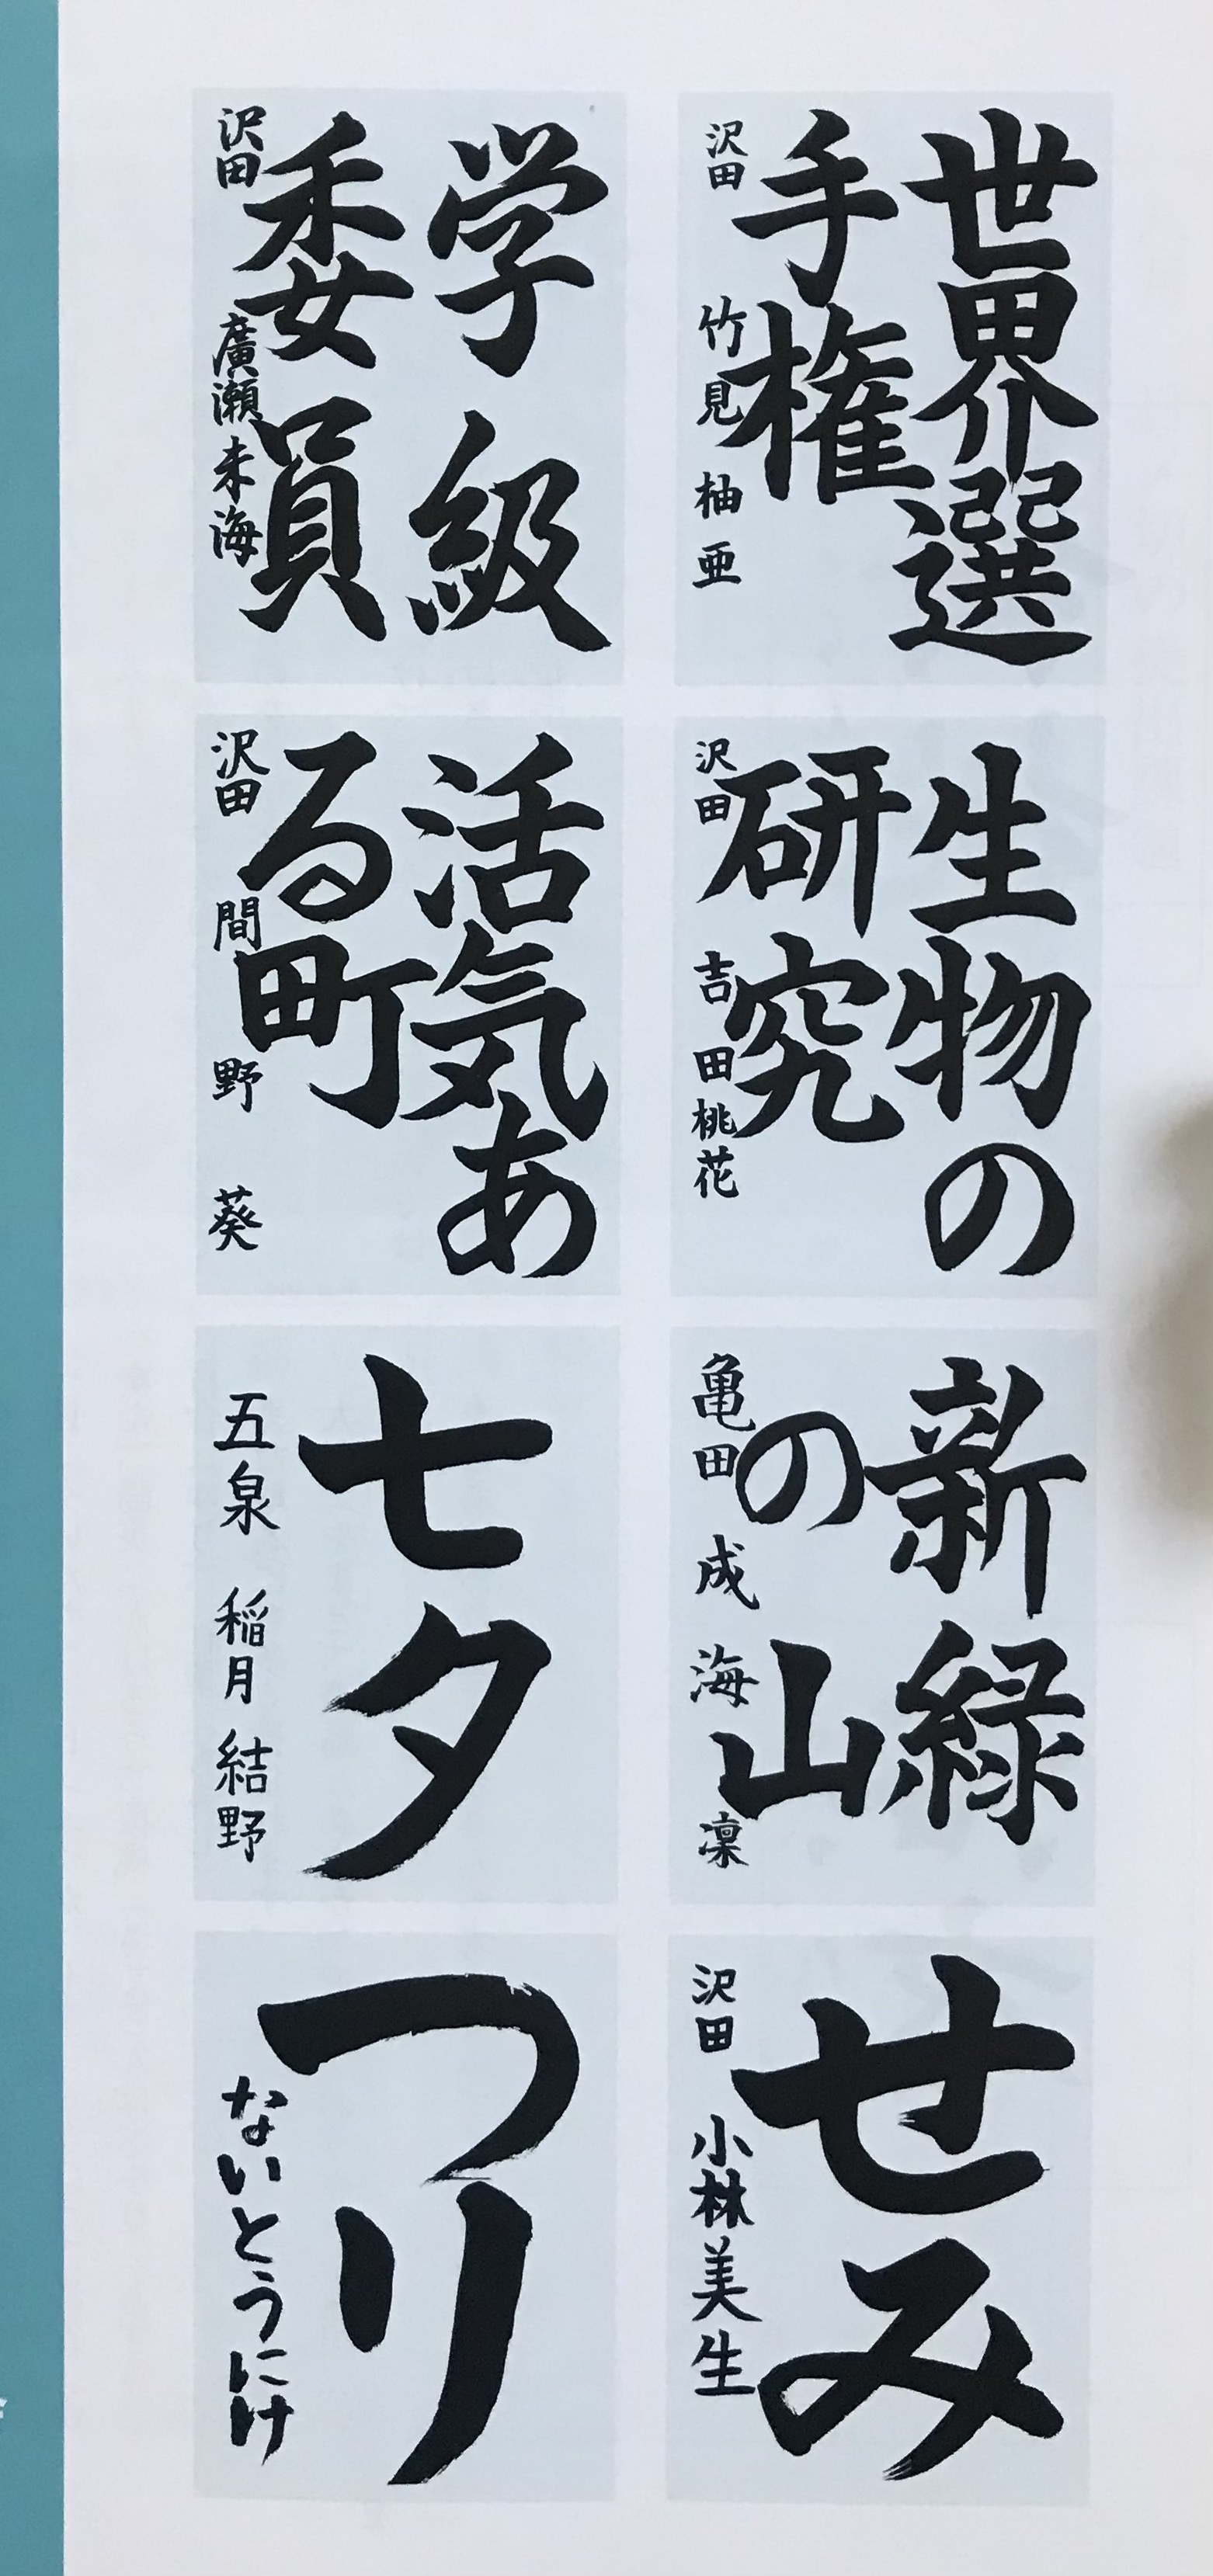 世界選
手権
沢田 竹見柚亜
学級
委員
沢田 廣瀬未海
生物の
研究
沢田 吉田桃花
活気あ
る町
沢田 間野 葵
新緑
の山
亀田 成海 凜
七夕
五泉 稲月結野
せみ
沢田 小林美生
つり
ないとうにけ